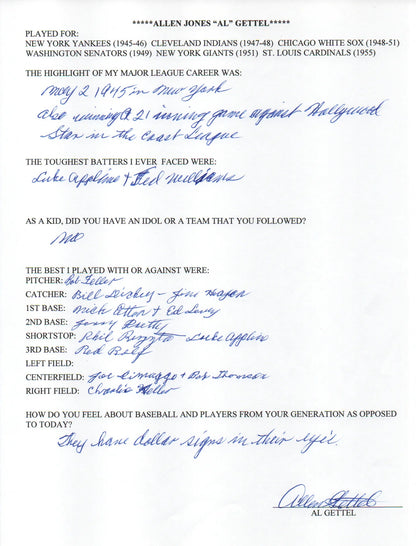 *****ALLEN JONES "AL" GETTEL*****
PLAYED FOR:
NEW YORK YANKEES (1945-46) CLEVELAND INDIANS (1947-48) CHICAGO WHITE SOX (1948-51)
WASHINGTON SENATORS (1949) NEW YORK GIANTS (1951) ST. LOUIS CARDINALS (1955)
THE HIGHLIGHT OF MY MAJOR LEAGUE CAREER WAS:
May 2 1945 in New York
also winning a 21 inning game against Hollywood
Stars in the Coast League
THE TOUGHEST BATTERS I EVER FACED WERE:
Luke Appling + Ted Williams
AS A KID, DID YOU HAVE AN IDOL OR A TEAM THAT YOU FOLLOWED?
no
THE BEST I PLAYED WITH OR AGAINST WERE:
PITCHER: Bob Feller
CATCHER: Bill Dickey - Jim Hegan
1ST BASE: Nick Etten + Ed
2ND BASE: Jerry
SHORTSTOP: Phil Rizzuto - Luke Appling
3RD BASE: Red Rolf
LEFT FIELD:
CENTERFIELD: Joe Dimaggo + Bob Thomson
RIGHT FIELD: Charlie Keller
HOW DO YOU FEEL ABOUT BASEBALL AND PLAYERS FROM YOUR GENERATION AS OPPOSED
TO TODAY?
They have dollar signs in their
Allen Gettel
AL GETTEL